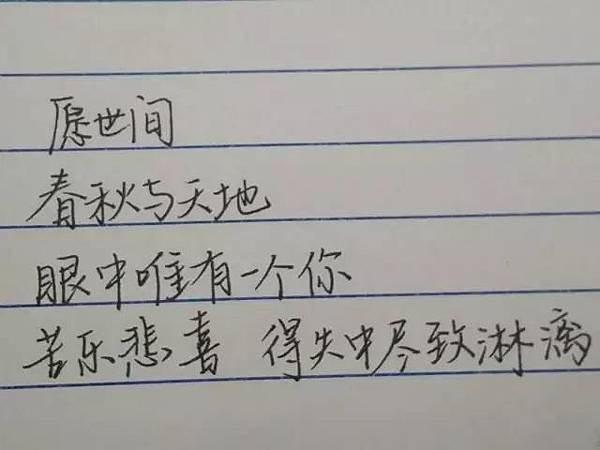 愿世间
春秋与天地
眼中唯有一个你
苦乐悲喜 得失中尽致淋漓